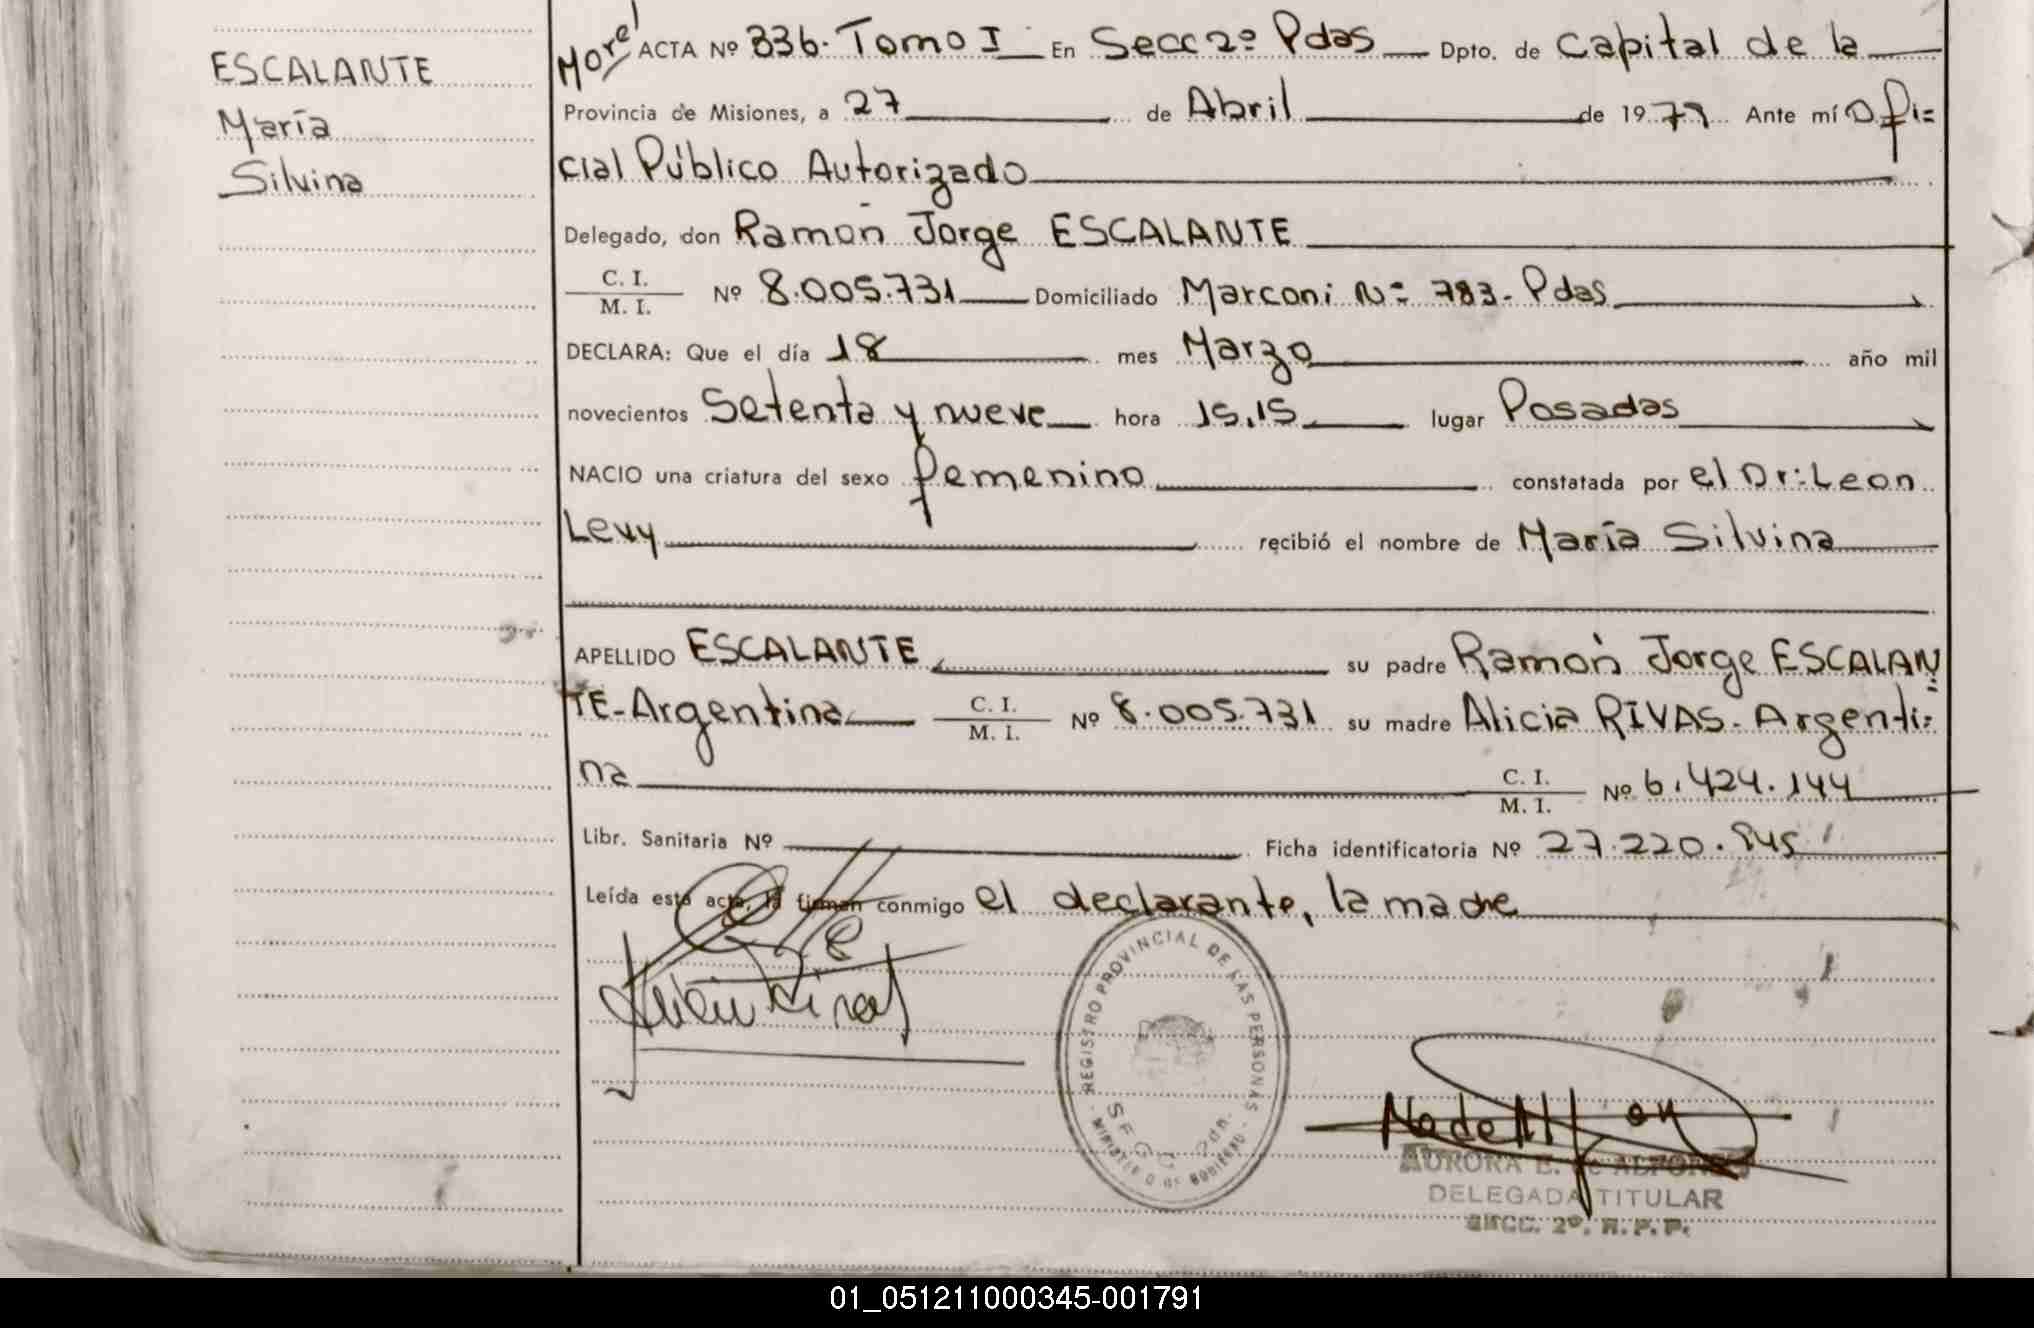 ESCALANTE
María
Silvina
ACTA Nº 336. Tomo I En Secc 2º Pdas Dpto. de Capital de la
Provincia de Misiones, a 27 de Abril de 1979 Ante mí Ofi=
cial Público Autorizado
Delegado, don Ramón Jorge ESCALANTE
C. I.
M. I. Nº 8.005.731 Domiciliado Marconi Nº 783- Pdas
DECLARA: Que el día 18 mes Marzo año mil
novecientos Setenta y nueve hora 15.15 lugar Posadas
NACIO una criatura del sexo femenino constatada por el Dr: Leon
Levy recibió el nombre de María Silvina
APELLIDO ESCALANTE su padre Ramón Jorge ESCALAN=
TE-Argentina C. I. M. I. Nº 8.005.731 su madre Alicia RIVAS- Argenti=
na C. I. M. I. Nº 6.424.144
Libr. Sanitaria Nº Ficha identificatoria Nº 27.220.845
Leída esta acta, la firman conmigo el declarante, la madre
REGISTRO PROVINCIAL DE LAS PERSONAS
MINISTERIO DE GOBIERNO
AURORA E. de ALFONSO
DELEGADA TITULAR
SECC. 2º. R. P. P.
01_051211000345-001791